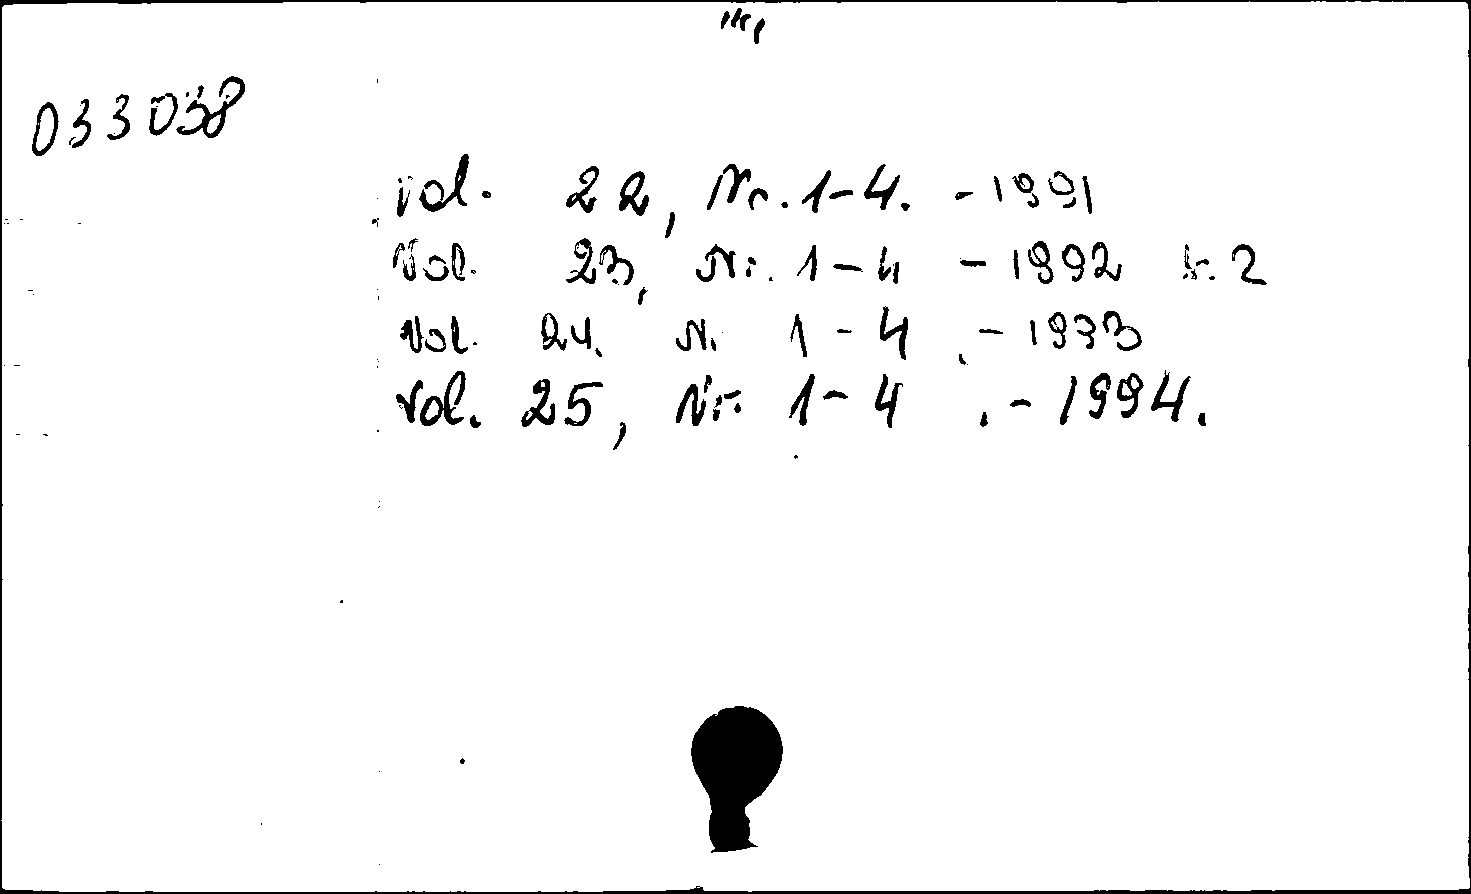 033038
Vol. 22, Nr. 1-4. - 1991
Vol. 23, Nr. 1-4 - 1992 k. 2
Vol. 24. N. 1-4 . - 1993
Vol. 25, Nr. 1-4 . - 1994.